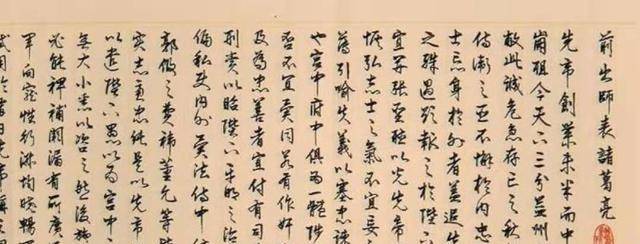 前出師表 諸葛亮
先帝創業未半而中
崩殂今天下三分益州
敝此誠危急存亡之秋
侍衛之臣不懈於內忠
士忘身於外者蓋追先
之殊遇欲報之於陛下
宜開張聖聽以光先帝
恢弘志士之氣不宜妄
薄引喻失義以塞忠諫
也宮中府中俱為一體陟
否不宜異同若有作奸
及為忠善者宜付有司
刑賞以昭陛下平明之治
偏私使內外異法侍中
郭攸之費禕董允等
實志慮忠純是以先帝
以遺陛下愚以為宮中
無大小悉以咨之然後施
必能裨補闕漏有所廣
軍向寵性行淑均曉暢
試用於昔日先帝稱